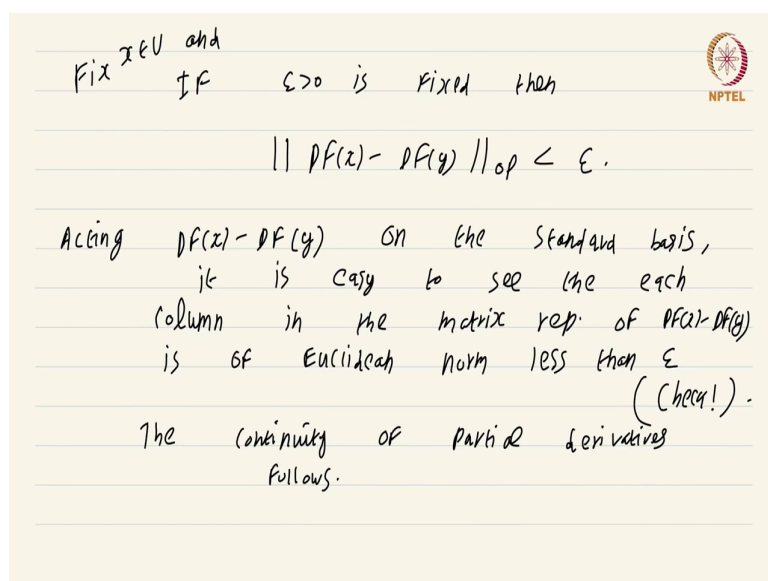 Fix x ∈ U and
IF ε>0 is Fixed then
NPTEL
|| DF(x) - DF(y) ||op < ε.
Acting DF(x) - DF(y) on the Standard basis,
it is easy to see the each
column in the matrix rep. of DF(x)-DF(y)
is of Euclidean norm less than ε
(Check!).
The continuity of partial derivatives
follows.